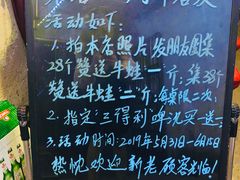 活动如下:
1.拍本店照片发朋友圈集
28个赞送牛蛙一斤,集38个
赞送牛蛙"二"斤,每桌限二次;
2.指定"三得利"啤沈买一送一;
3.活动时间:2019年5月31日—6月15日
热忱欢迎新老顾客光临!